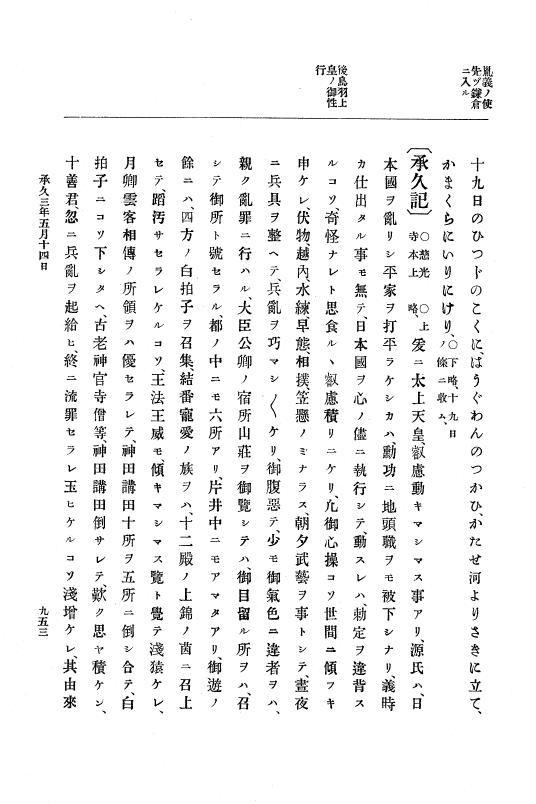 胤義ノ使
先ヅ鎌倉
ニ入ル
後鳥羽上
皇ノ御性
行
十九日のひつ￿じのこくに、はうぐわんのつかひ、かたせ河よりさきに立て、
かまくらにいりにけり、○下略、十九日ノ條ニ收ム、
〔承久記〕○慈光寺本 ○上略、爰ニ太上天皇、叡慮動キマシマス事アリ、源氏ハ、日
本國ヲ亂リシ平家ヲ打平ラケシカハ、勳功ニ地頭職ヲモ被下シナリ、義時
カ仕出タル事モ無テ、日本國ヲ心ノ儘ニ執行シテ、動スレハ、勅定ヲ違背ス
ルコソ、奇怪ナレト思食ルヽ叡慮積リニケリ、凢御心操コソ世間ニ傾フキ
申ケレ、伏物、越內、水練、早態、相撲、笠懸ノミナラス、朝夕武藝ヲ事トシテ、晝夜
ニ兵具ヲ整ヘテ、兵亂ヲ巧マシ〱ケリ、御腹惡テ、少モ御氣色ニ違者ヲハ、
親ク亂罪ニ行ハル、大臣公卿ノ宿所山莊ヲ御覽シテハ、御目留ル所ヲハ、召
シテ御所ト號セラル、都ノ中ニモ六所アリ、片井中ニモアマタアリ、御遊ノ
餘ニハ、四方ノ白拍子ヲ召集、結番寵愛ノ族ヲハ、十二殿ノ上錦ノ茵ニ召上
セテ、蹈汚サセラレケルコソ、王法王威モ、傾キマシマス覽ト覺テ淺猿ケレ、
月卿雲客相傳ノ所領ヲハ優セラレテ、神田講田十所ヲ五所ニ倒シ合テ、白
拍子ニコソ下シタヘ、古老神官寺僧等、神田講田倒サレテ、歎ク思ヤ積ケン、
十善君、忽ニ兵亂ヲ起給ヒ、終ニ流罪セラレ玉ヒケルコソ淺增ケレ、其由來
承久三年五月十四日
九五三